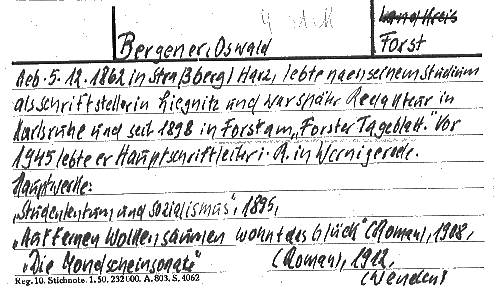 Land Kreis
Bergener, Oswald
Forst
Geb. 5.12.1862 in Straßberg/Harz, lebte nach seinem Studium
als Schriftsteller in Liegnitz und war später Redakteur in
Karlsruhe und seit 1898 in Forst am „Forster Tageblatt." Vor
1945 lebte er Hauptschriftleiter i. R. in Wernigerode.
Hauptwerke:
„Studententum und Sozialismus", 1895,
„Auf fernen Wolkensäumen wohnt das Glück" (Roman), 1908,
„Die Mondscheinsonate" (Roman), 1912,
(Wenden!)
Reg. 10. Stichnote. 1. 50. 232000. A. 803. S. 4062